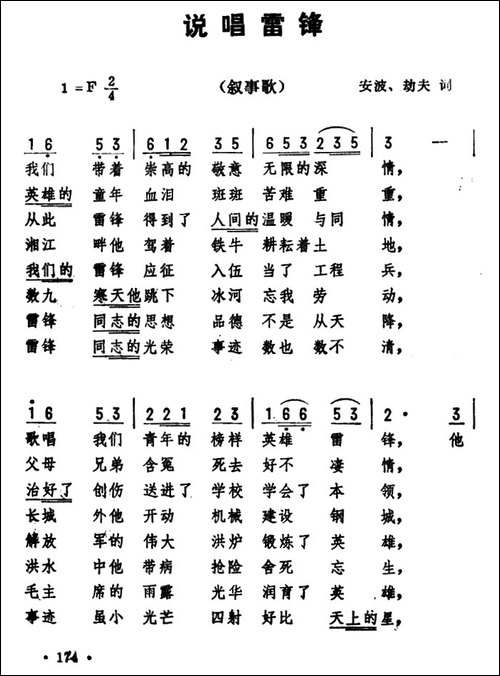 说唱雷锋
1=F 2/4 （叙事歌） 安波、劫夫 词
1 6 5 3 | 6 1 2 3 5 | 6 5 3 2 3 5 | 3 — |
我们 带着 崇高的 敬意 无限的深 情，
英雄的 童年 血泪 斑斑 苦难 重 重，
从此 雷锋 得到了 人间的 温暖 与同 情，
湘江 畔他 驾着 铁牛 耕耘着土 地，
我们的 雷锋 应征 入伍 当了 工程 兵，
数九 寒天他 跳下 冰河 忘我 劳 动，
雷锋 同志的 思想 品德 不是 从天 降，
雷锋 同志的 光荣 事迹 数也 数不 清，
1 6 5 3 | 2 2 1 2 3 | 1 6 6 5 3 | 2 · 3 |
歌唱 我们 青年的 榜样 英雄 雷 锋，他
父母 兄弟 含冤 死去 好不 凄 情，
治好了 创伤 送进了 学校 学会了 本 领，
长城 外他 开动 机械 建设 钢 城，
解放 军的 伟大 洪炉 锻炼了 英 雄，
洪水 中他 带病 抢险 舍死 忘 生，
毛主 席的 雨露 光华 润育了 英 雄，
事迹 虽小 光芒 四射 好比 天上的 星，
· 174 ·